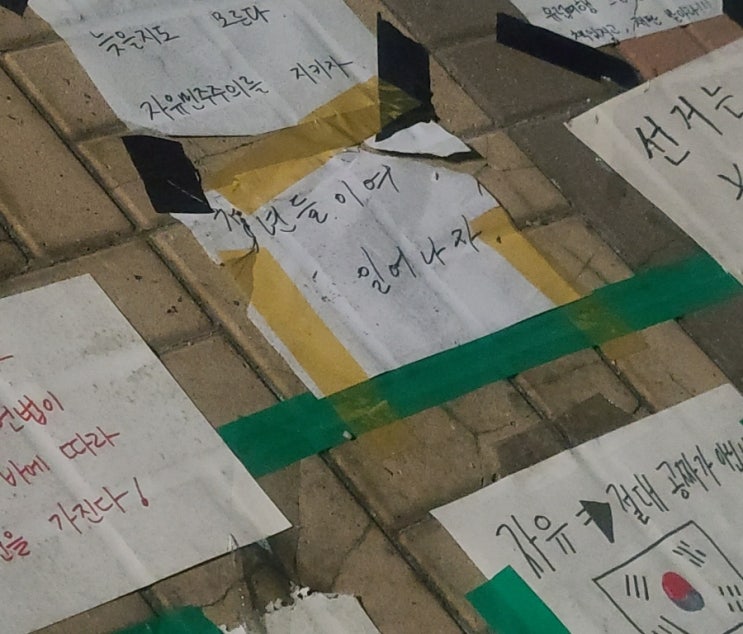 늦을지도 모른다
자유민주주의를 지키자
선거는
청년들이여
일어나자
연법이
바에 따라
을 가진다!
자유 절대 공짜가